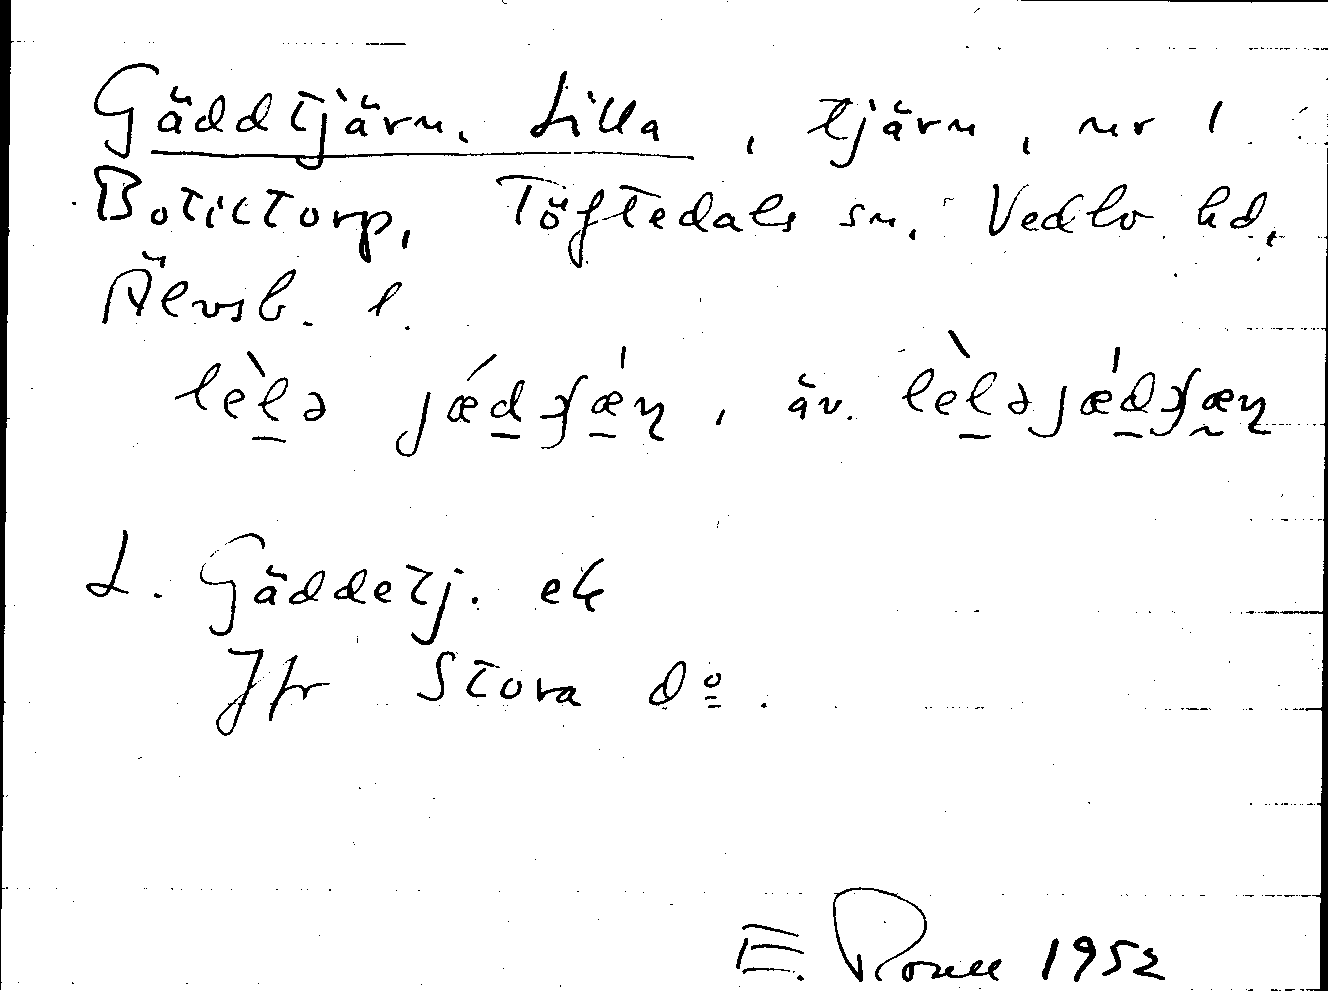 Gäddtjärn, Lilla, tjärn, nr 1
Botictorp, Töftedals sn, Vedbo hd,
Älvsb. l.
lèlə jǽdʃǽɳ, äv. lèləjǽdʃæɳ
L. Gäddetj. ek
Jfr Stora dº.
E. 1952